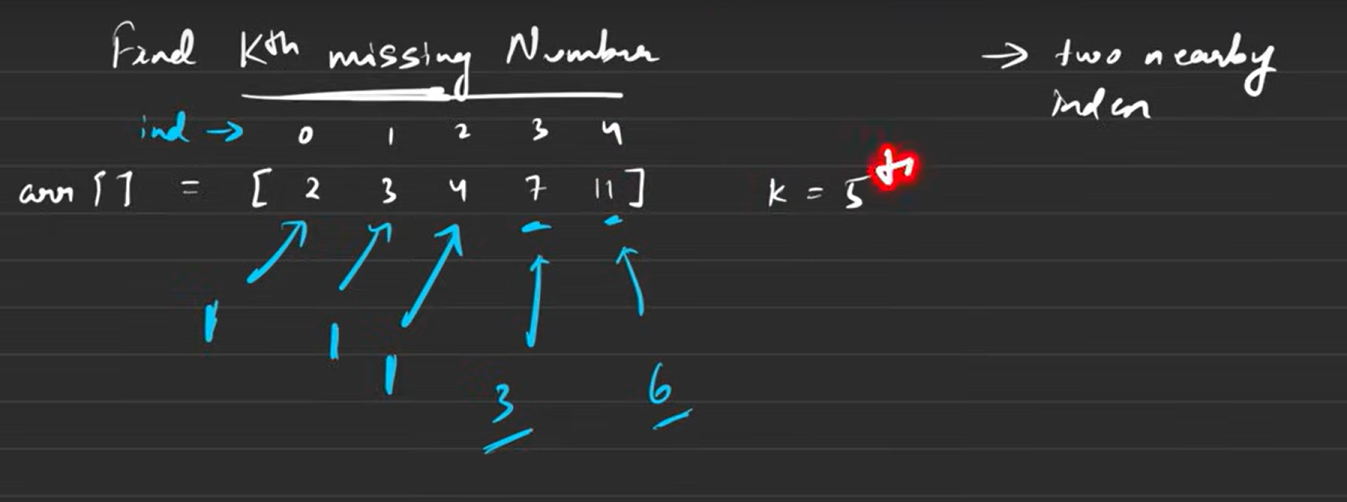 Find Kth missing Number
→ two nearby
index
ind → 0 1 2 3 4
arr [] = [ 2 3 4 7 11 ] K = 5th
1 1 1 3 6